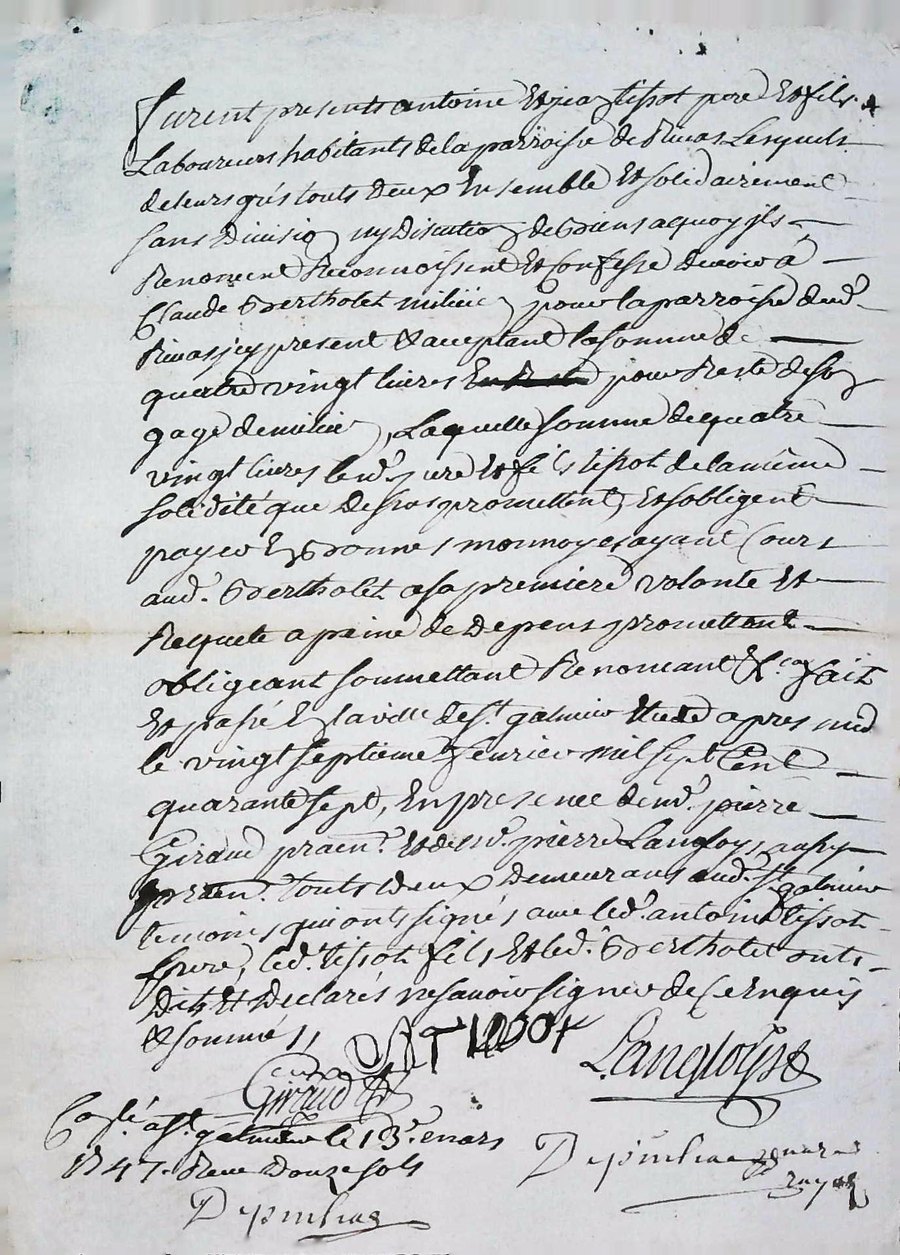 furent presents antoine Et jean tissot pere Et fils
Laboureurs habitants de la parroisse de Rivas Lesquels
de leurs grés touts Deux Ensemble Et solidairement
sans Division ny Discution de biens a quoy ils
Renoncent Reconnoissent Et Confesse Devoir a
Claude Bertholet milicien pour la parroisse dud.
Rivas icy present & acceptant la somme de
quatre vingt livres pour Reste de son
gage de milice, Laquelle somme de quatre
vingt livres lesd. pere Et fils tissot de la même
solidité que dessus promettent, Et sobligent
payer En bonnes monnoyes ayant Cours
aud. Bertholet a sa premiere volonte Et
Requete a peine de Depens promettant
obligeant soumettant Renoncant &ca fait
Et passé En la ville de st. galmier Etude apres midi
le vingt septieme fevrier mil sept Cent
quarante sept, En presence de md. pierre
Giraud praen. Et de sd. pierre Langloys aussy
praen. touts Deux Demeurans aud. st. galmier
temoins qui ont signés avec led. antoine tissot
pere, led. tissot fils Et led. Bertholet onts
Dits Et Declarés ne savoir signer de Ce Enquis
& sommés,,
AT
Langloys
Giraud
Conlé a st. galmier le 13e. mars
1747. Reçu Douze sols